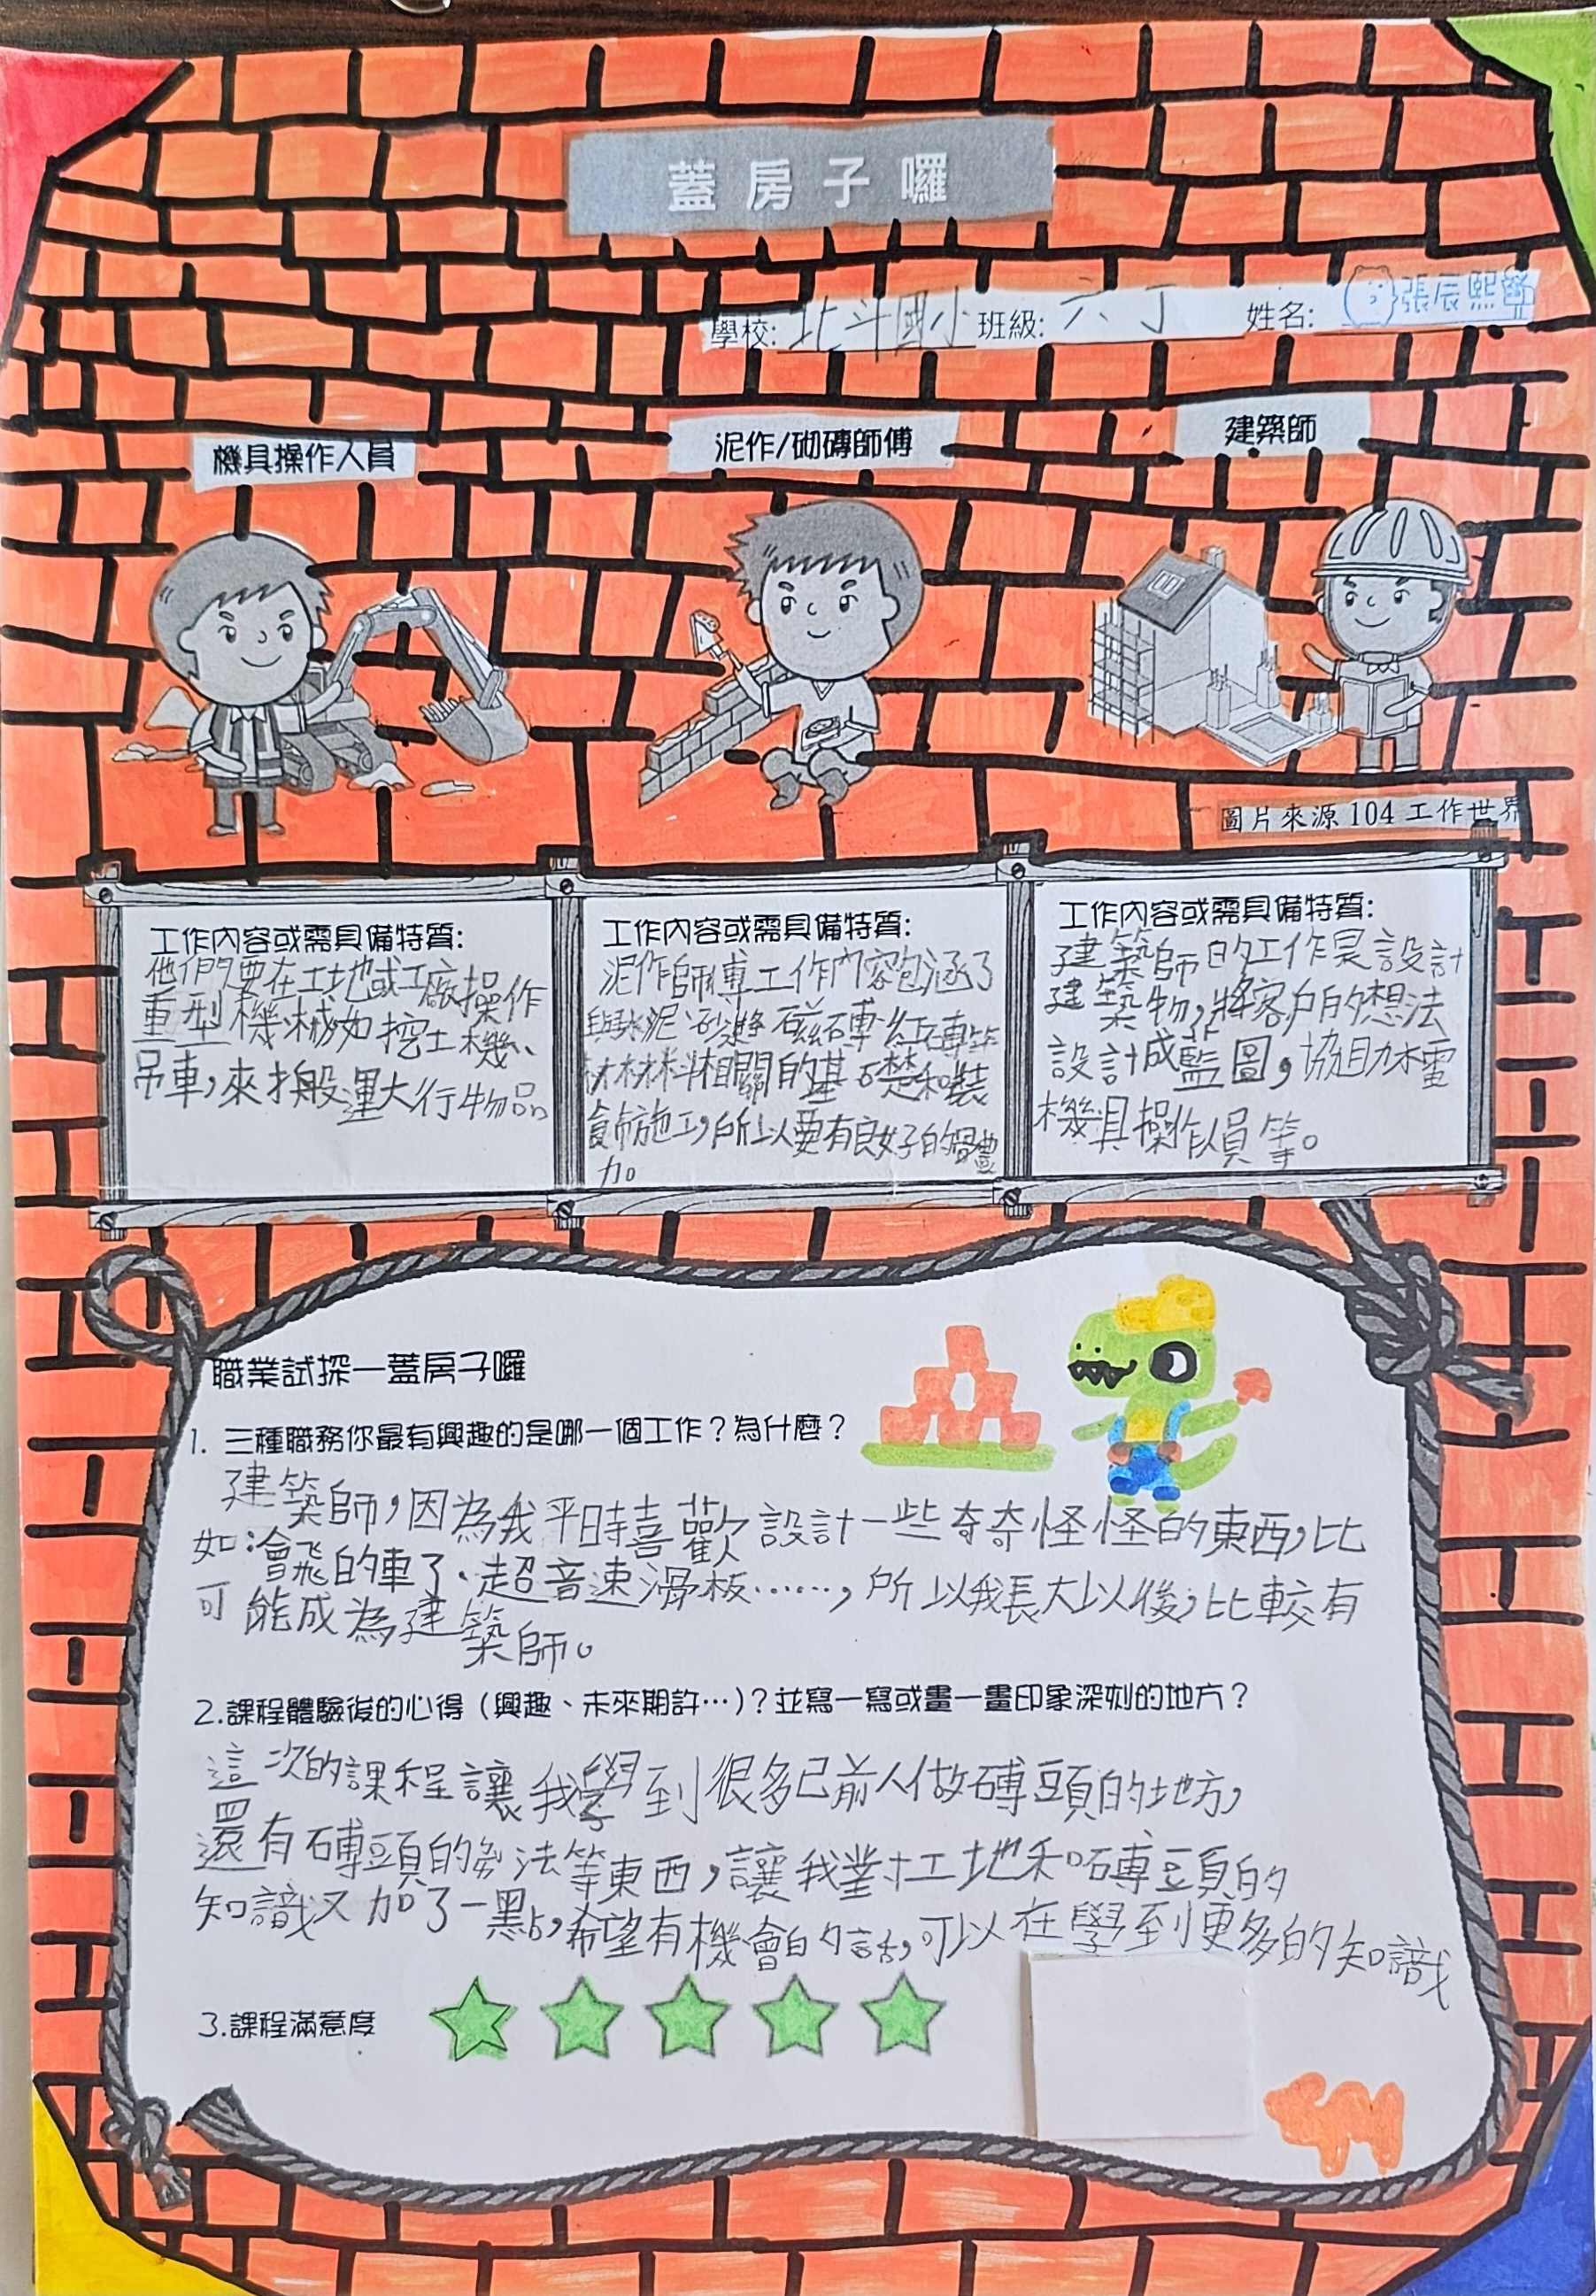 蓋房子囉
學校: 北斗國小 班級: 六丁 姓名: 張辰熙
機具操作人員
泥作/砌磚師傅
建築師
圖片來源104工作世界
工作內容或需具備特質:
他們要在工地或工廠操作
重型機械如挖土機、
吊車,來搬運大行物品
工作內容或需具備特質:
泥作師傅工作內容包涵了
與水泥、砂漿、磁磚、紅磚等
材料相關的基礎和裝
飾施工,所以要有良好的體
力。
工作內容或需具備特質:
建築師的工作是設計
建築物,將客戶的想法
設計成藍圖,協助
機具操作人員等。
職業試探—蓋房子囉
1. 三種職務你最有興趣的是哪一個工作?為什麼?
建築師,因為我平時喜歡設計一些奇奇怪怪的東西,比
如:會飛的車子、超音速滑板……,所以我長大以後,比較有
可能成為建築師。
2.課程體驗後的心得(興趣、未來期許…)?並寫一寫或畫一畫印象深刻的地方?
這次的課程讓我學到很多已前人做磚頭的地方,
還有磚頭的砌法等東西,讓我對工地和磚頭的
知識又加了一點,希望有機會的話,可以在學到更多的知識
3.課程滿意度